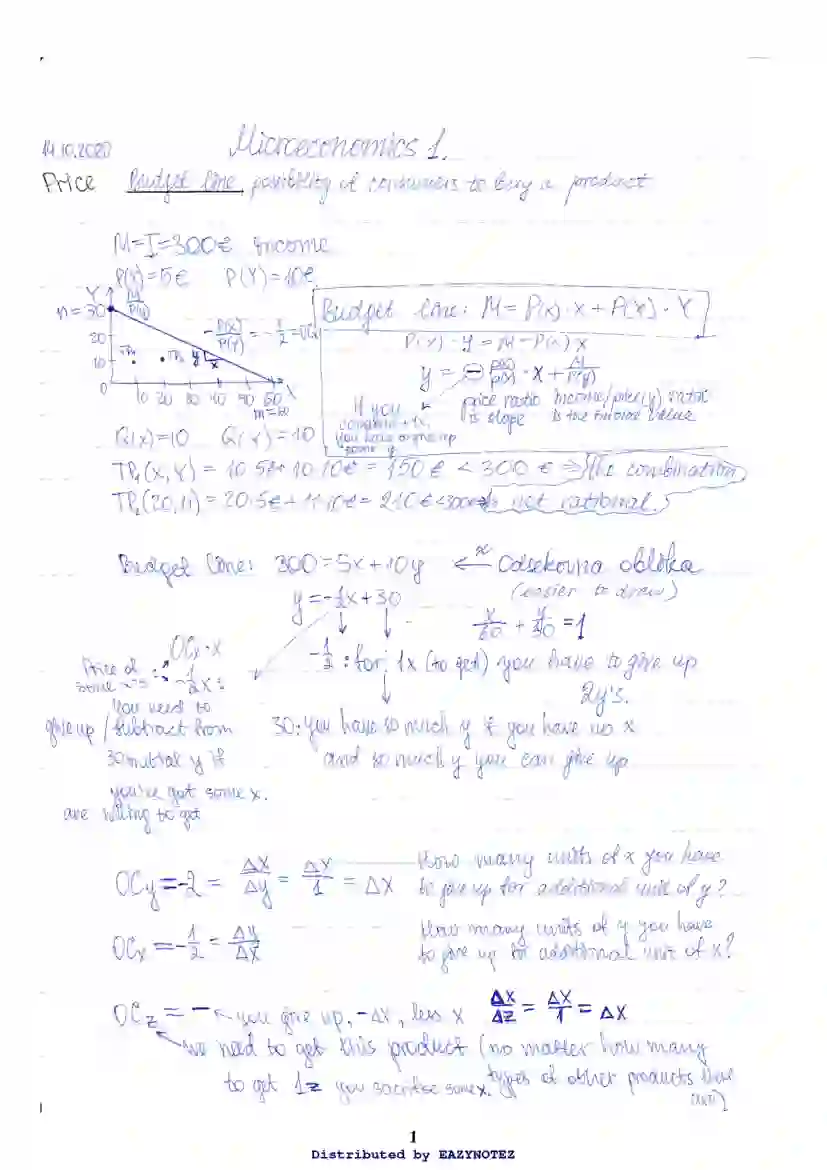 14.10.2020 Microeconomics 1.
Price Budget line possibility of consumers to buy a product
M=I=300€ income
P(X)=5€ P(Y)=10€
Y M/P(Y)
n=30
20
10
0 10 20 30 40 50 60 X
m=60
TP₁ TP₂ y x
-P(X)/P(Y) = -1/2 = OCx
Budget line: M=P(x)·x+P(Y)·Y
P(Y)·y=M-P(x)x
y = - P(x)/P(Y) · x + M/P(Y)
If you
consume +1x,
you have to give up
some y
price ratio
is slope
income/price(y) ratio
is the value
Q(x)=10 Q(Y)=10
TP₁(X,Y) = 10·5€+10·10€ = 150€ < 300€ ⇒ the combination
TP₂(20,11) = 20·5€+11·10€ = 210€ <300€ is not rational.
Budget line: 300=5x+10y ← Odsekovna oblika
y=-1/2x+30 (easier to draw)
x/60 + y/30 = 1
OCx·x
Price of
some x's: -1/2x:
you need to
give up / subtract from
30 y if
you've got some x.
are willing to get
-1/2: for 1x (to get) you have to give up
2y's.
30: you have so much y if you have no x
and so much y you can give up
OCy=-2 = ΔX/Δy = ΔX/1 = ΔX How many units of x you have
to give up for additional unit of y?
OCx=-1/2 = Δy/ΔX How many units of y you have
to give up for additional unit of x?
OCz = - ← you give up, -Δx, less x ΔX/ΔZ = ΔX/1 = ΔX
we need to get this product (no matter how many
types of other products there
to get 1z you sacrifice some x.
1
Distributed by EAZYNOTEZ